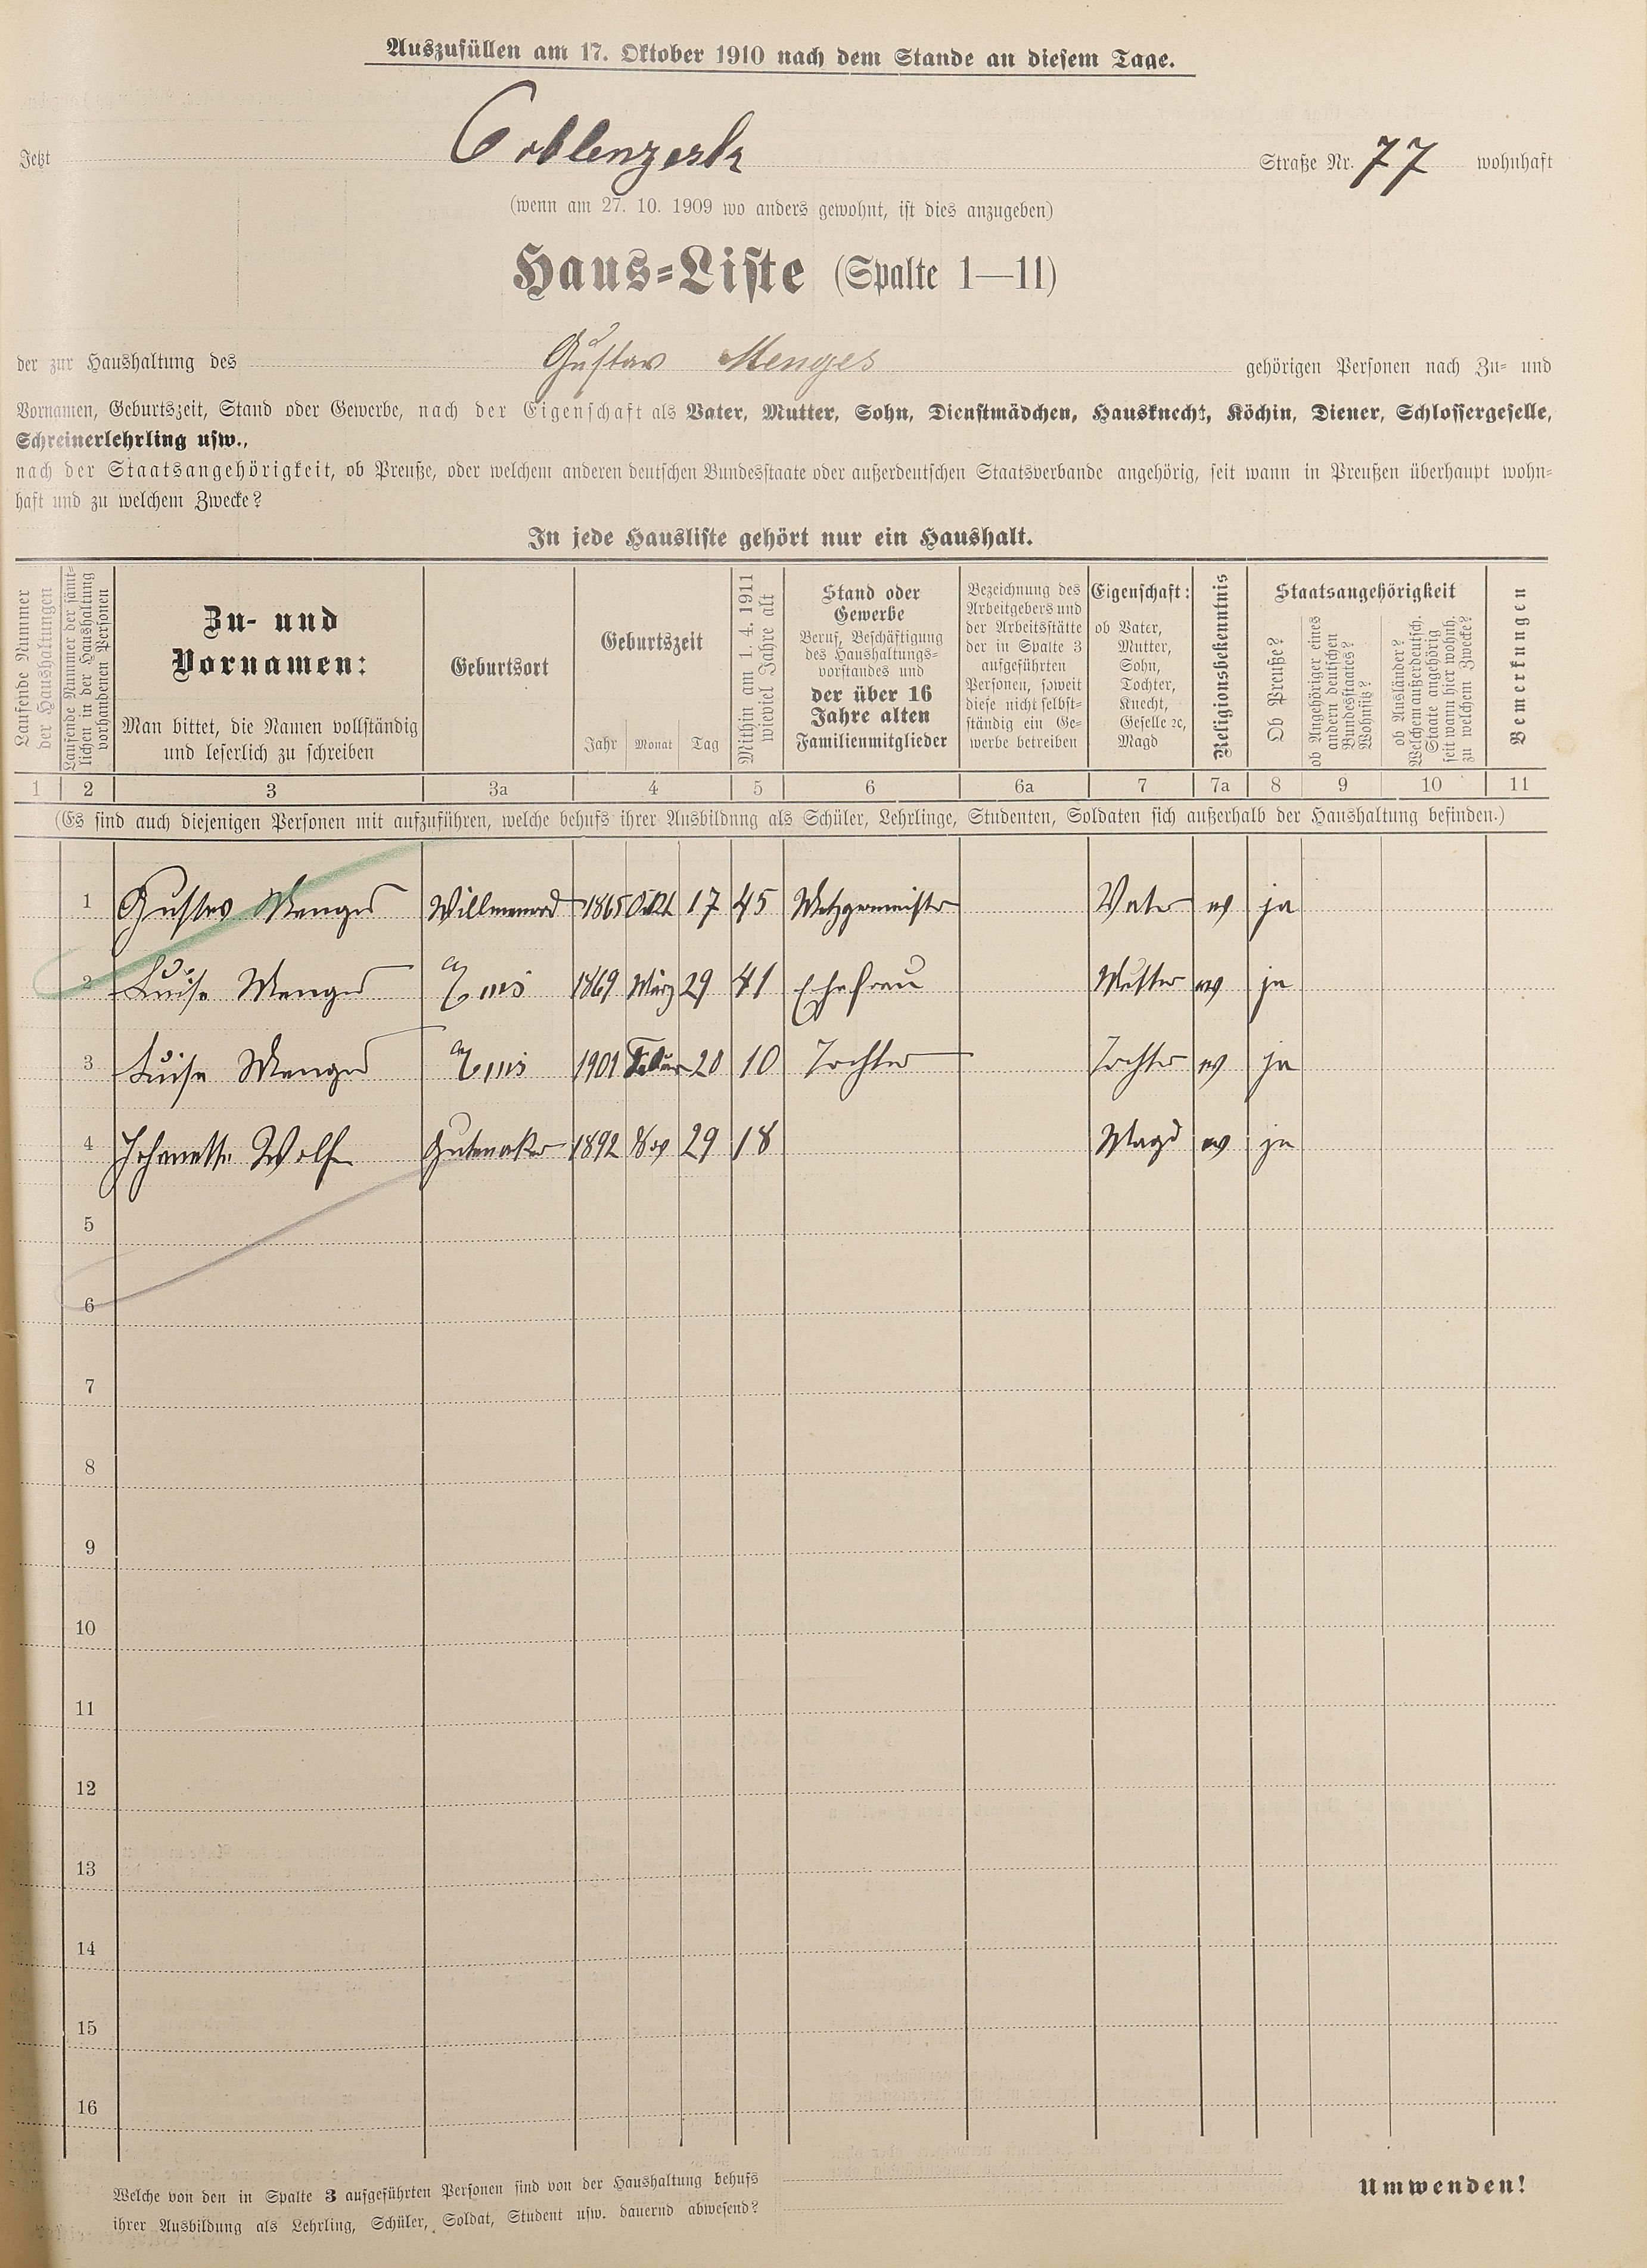 Auszufüllen am 17. Oktober 1910 nach dem Stande an diesem Tage.
Jetzt Coblenzerstr Straße Nr. 77 wohnhaft
(wenn am 27. 10. 1909 wo anders gewohnt, ist dies anzugeben)
Haus-Liste (Spalte 1—11)
der zur Haushaltung des Gustav Menges gehörigen Personen nach Zu- und
Vornamen, Geburtszeit, Stand oder Gewerbe, nach der Eigenschaft als Vater, Mutter, Sohn, Dienstmädchen, Hausknecht, Köchin, Diener, Schlossergeselle,
Schreinerlehrling usw.,
nach der Staatsangehörigkeit, ob Preuße, oder welchem anderen deutschen Bundesstaate oder außerdeutschen Staatsverbande angehörig, seit wann in Preußen überhaupt wohn-
haft und zu welchem Zwecke?
In jede Hausliste gehört nur ein Haushalt.
Laufende Nummer
der Haushaltungen
Laufende Nummer der sämt-
lichen in der Haushaltung
vorhandenen Personen
Zu- und
Vornamen:
Man bittet, die Namen vollständig
und leserlich zu schreiben
Geburtsort
Geburtszeit
Jahr Monat Tag
Mithin am 1. 4. 1911
wieviel Jahre alt
Stand oder
Gewerbe
Beruf, Beschäftigung
des Haushaltungs-
vorstandes und
der über 16
Jahre alten
Familienmitglieder
Bezeichnung des
Arbeitgebers und
der Arbeitsstätte
der in Spalte 3
aufgeführten
Personen, soweit
diese nicht selbst-
ständig ein Ge-
werbe betreiben
Eigenschaft:
ob Vater,
Mutter,
Sohn,
Tochter,
Knecht,
Geselle ꝛc,
Magd
Religionsbekenntnis
Staatsangehörigkeit
Ob Preuße?
ob Angehöriger eines
andern deutschen
Bundesstaates?
Wohnsitz?
ob Ausländer?
Welchem außerdeutsch.
Staate angehörig
seit wann hier wohnh.
zu welchem Zwecke?
Bemerkungen
1 2 3 3a 4 5 6 6a 7 7a 8 9 10 11
(Es sind auch diejenigen Personen mit aufzuführen, welche behufs ihrer Ausbildung als Schüler, Lehrlinge, Studenten, Soldaten sich außerhalb der Haushaltung befinden.)
1 Gustav Menges Willmenrod 1865 Okt 17 45 Metzgermeister Vater ev ja
2 Luise Menges Ems 1869 März 29 41 Ehefrau Mutter ev ja
3 Luise Menges Ems 1901 Febuar 20 10 Tochter Tochter ev ja
4 Johanette Wolf Gutenaker 1892 Nov 29 18 Magd ev ja
5
6
7
8
9
10
11
12
13
14
15
16
Welche von den in Spalte 3 aufgeführten Personen sind von der Haushaltung behufs
ihrer Ausbildung als Lehrling, Schüler, Soldat, Student usw. dauernd abwesend?
Umwenden!